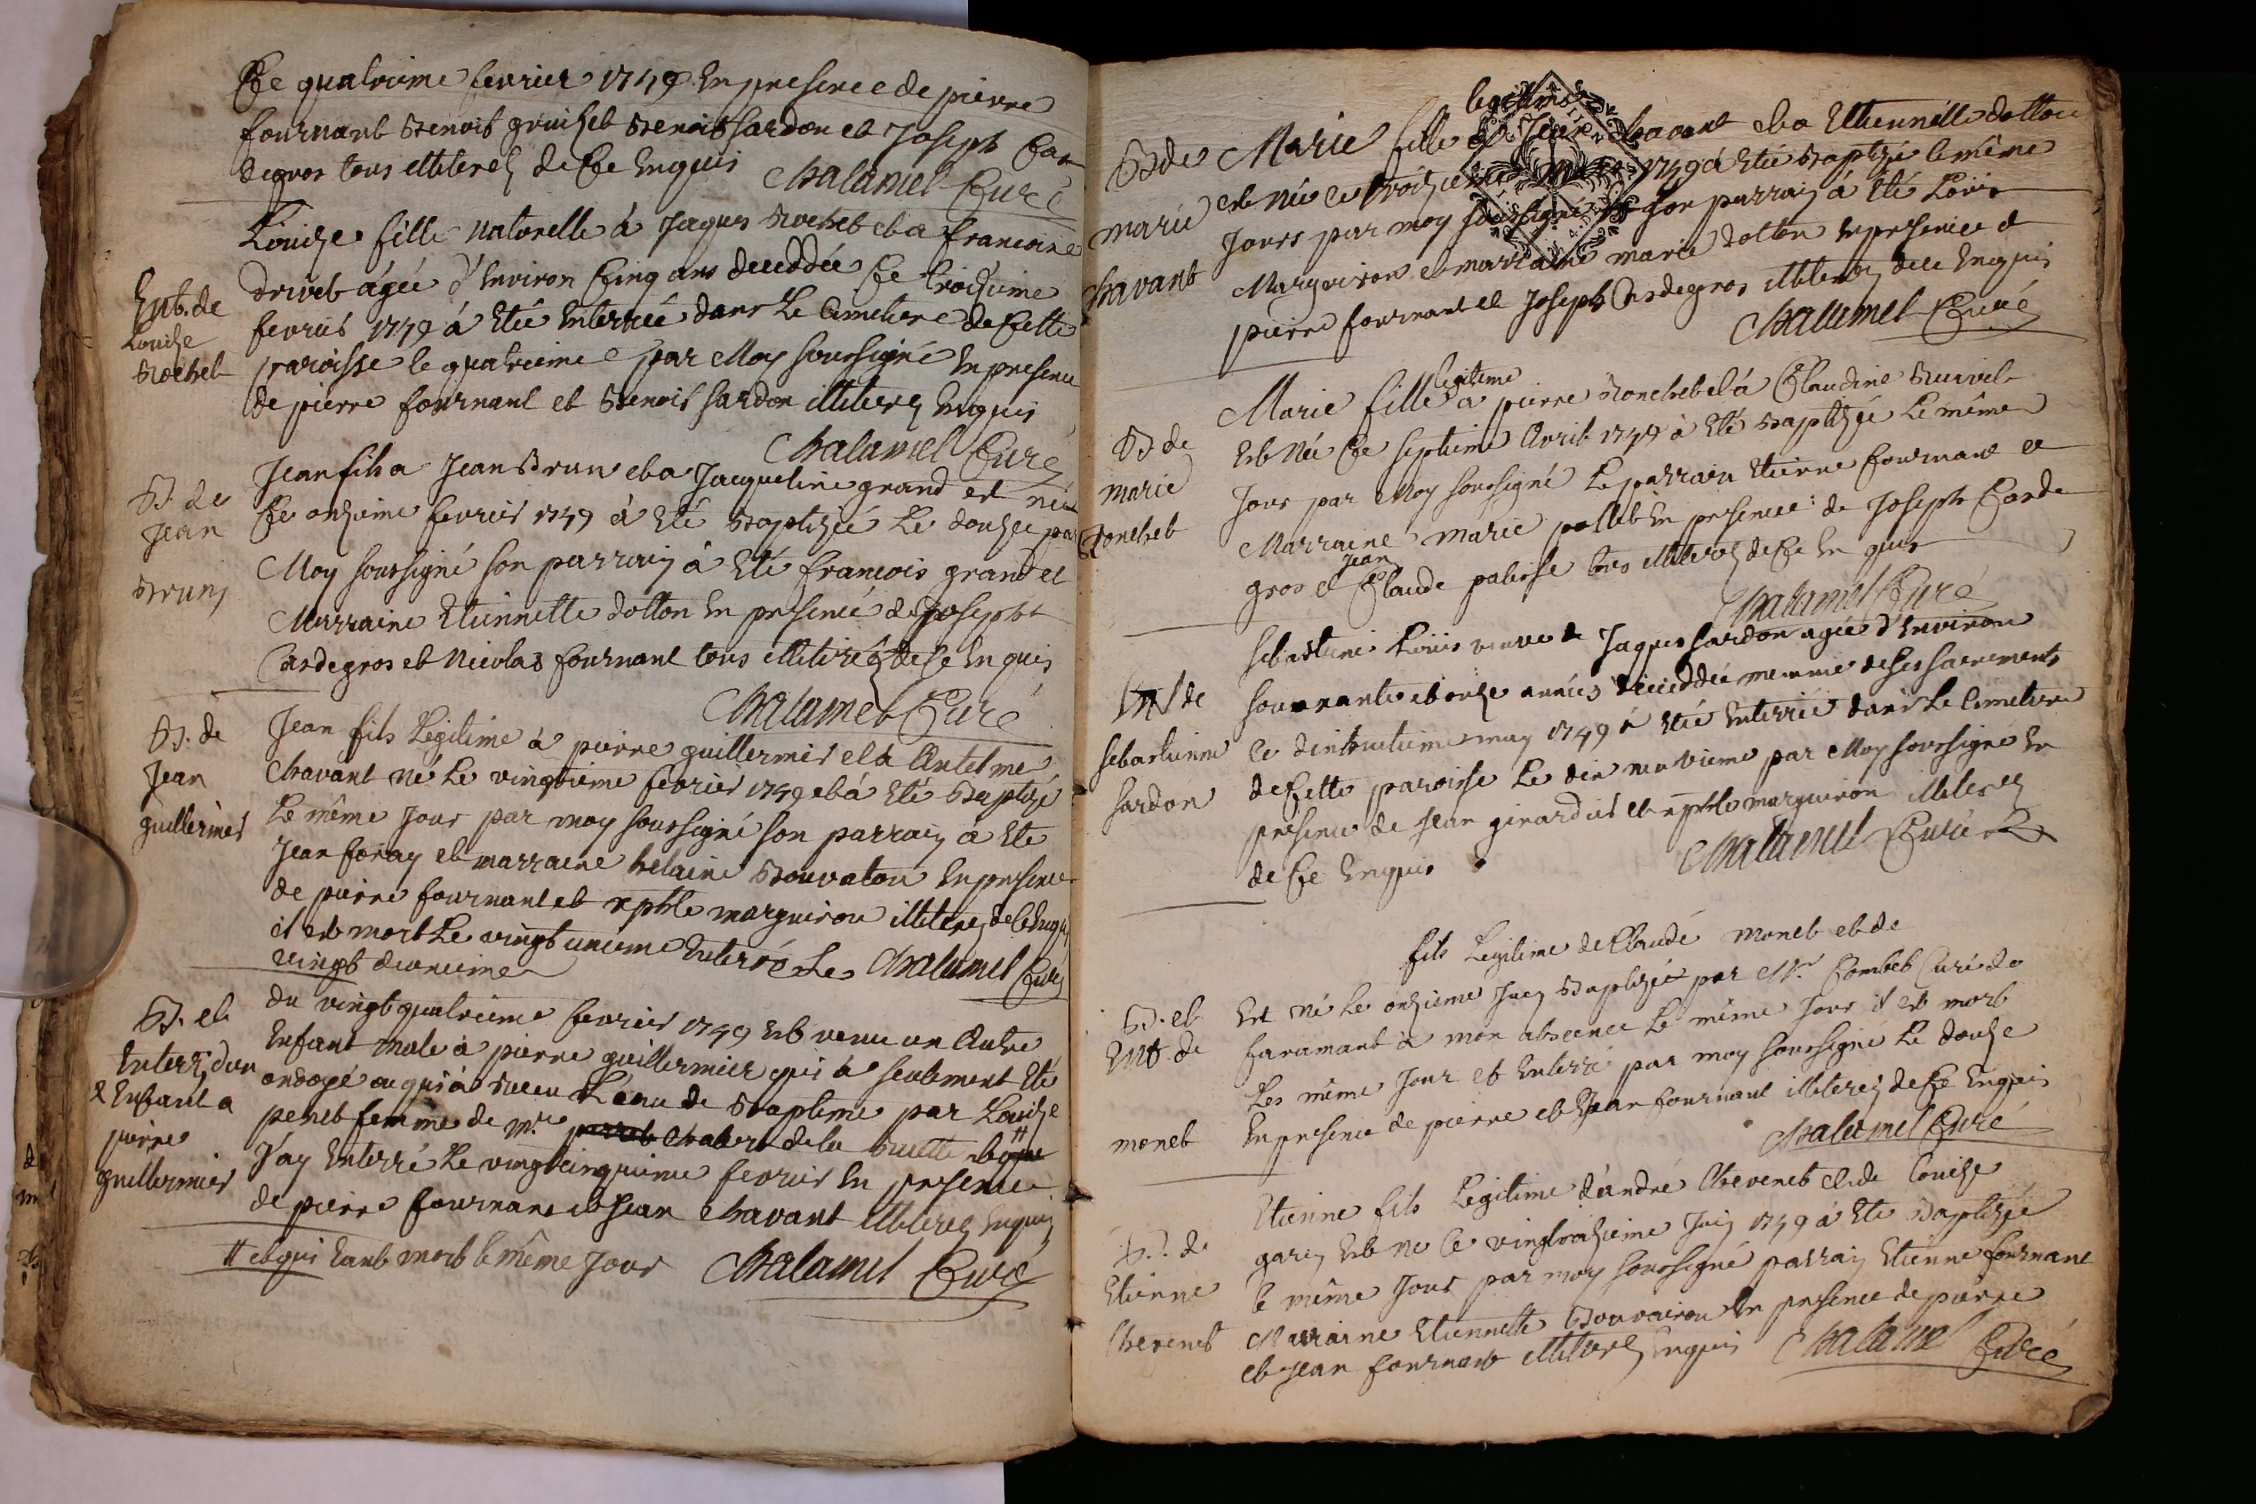 Ce quatrieme fevrier 1749 En presence de pierre
fournant Benoit gruichet Benoit Sardon et Joseph Car
degros tous illiterez de Ce Enquis Chalamel Curé
Ent. de
Louise
Rochet
Louise fille naturelle à Jaques Rochet et a francoise
Drivet agée d'Environ Cinq ans decedée Ce troisieme
fevrier 1749 à Eté Enterrée dans Le Cimetiere de Cette
paroisse le quatrieme par Moy soussigné En presence
de pierre fournant et Benoit Sardon illiterez Enquis
Chalamel Curé
B. de
Jean
Brun
Jean fils a Jean Brun et a Jacqueline grand et né
Ce onzieme fevrier 1749 à Eté Baptizée Le douze par
Moy soussigné son parrain à Eté francois grand et
Marraine Etiennette dotton En presence de Joseph
Cardegros et Nicolas fournant tous illiterez de Ce Enquis
Chalamel Curé
B. de
Jean
guillermet
Jean fils Legitime à pierre guillermet et à Antelme
Chavant né Le vingtieme fevrier 1749 et à Eté Baptizé
Le même Jour par moy soussigné son parrain à Eté
Jean foray et marraine helaine Bouvaton En presence
de pierre fournant et xphle marguiron illiterez de Ce Enquis
il est mort Le vingt unieme Enterré Le Chalamel Curé
vingt deuxieme
B. et
Enterr. d'un
Enfant a
pierre
guillermier
du vingt quatrieme fevrier 1749 Est venu un Autre
Enfant male à pierre guillermier qui à seulement Eté
ondoyé ou qui à Receu L'eau de Bapteme par Louise
penet femme de Mr. Chabert de la Ruette #
J'ay Enterré Le vingtcinquieme fevrier En presence
de pierre fournant et Jean Chavant illiterez Enquis
# et qui Etant mort le même Jour Chalamel Curé
B de
marie
Chavant
legitime
Marie fille à Jean Chavant et a Etiennette dotton
est Née Le troizieme 1749 à Eté Baptizée le même
Jours par moy soussigné son parrain à Eté Louis
Marguiron et marraine marie dotton En presence de
pierre fournant et Joseph Cardegros illiterez de ce Enquis
Chalamel Curé
B de
marie
Ronchet
legitime
Marie fille à pierre Ronchet et à Claudine Burvet
Est Née Ce septieme Avrit 1749 à Eté Baptizée Le même
Jour par Moy soussigné Le parrain Etienne fournant et
Marraine Marie pollet En presence de Joseph Carde
gros et Jean Claude palisse tous illiterez de Ce Enquis
Chalamel Curé
Ent de
sebastienne
Sardon
sebastiene Louis veuve de Jaques Sardon agée d'Environ
soixante et onze années deceddée munie de ses sacrements
Ce dixhuitieme may 1749 à Eté Enterrée dans Le Cimetiere
de Cette paroisse Le dix neuvieme par Moy soussigné En
presence de Jean girardet et xphle marguiron illiterez
de Ce Enquis Chalamel Curé
B. et
Ent. de
monet
fils Legitime de Claude monet et de
Est Né Le onzieme Juin Baptizée par Mr. Combet Curé de
faramant à mon absence Le même Jour il est mort
Les même Jour et Enterré par moy soussigné Le douze
En presence de pierre et Jean fournant illiterez de Ce Enquis
Chalamel Curé
B. de
Etienne
Chevenet
Etienne fils Legitime d'andré Chevenet et de Louise
garin Est né Ce vingttroizieme Juin 1749 à Eté Baptizée
le même Jour par moy soussigné parrain Etienne fournant
Marraine Etiennette Bouvairon En presence de pierre
et Jean fournant illiterez Enquis Chalamel Curé